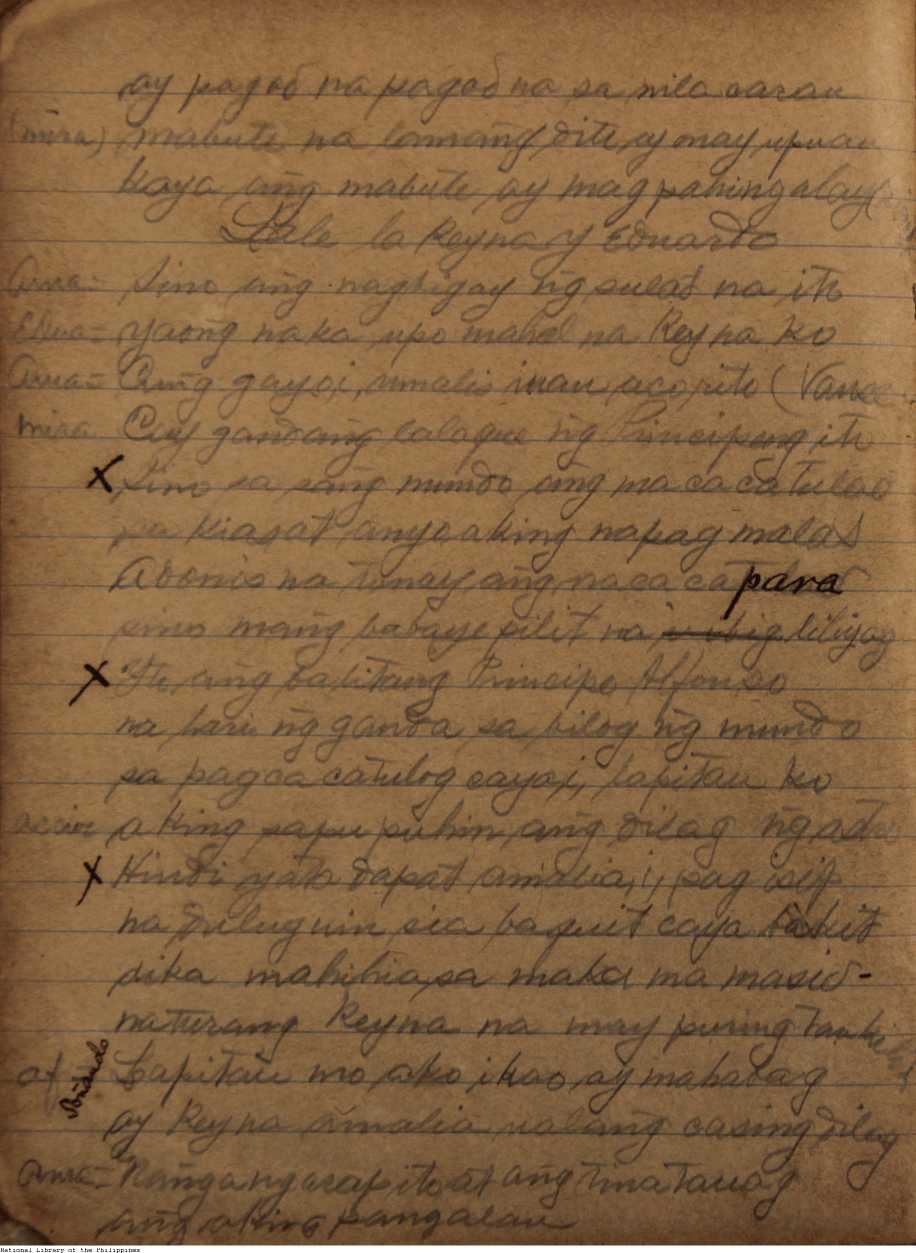 ay pagod na pagod na sa nila cacau
(mira) mabute na lamang dite ay may upuan
kaya ang mabute ay magpahingalay
Sale la Reyna y Eduardo
Ama- Sino ang nagbigay ng sulat na ito
Edua- yaong naka upo mahal na Reyna ko
Ama- Cung gayo,i, umalis icau aco,rito (Vanse
mira Cay gandang lalaque ng Principeng ito
X Sino sa sang mundo ang macacatulad
pu kiasat anyo aking napagmalas
Adonis na tunay ang nacaca para
sino mang babaye pilit na liliyag
X Ito ang balitang Principe Alfonso
na hari ng ganda sa bilog ng mundo
sa pagcacatulog caya,i, lapitan ko
accion aking sapupuhin ang dilag ng
X Hindi yata dapat amalia,i, pag isip
na diluguin sia baquit caya
sika mahihia sa maka ma masid-
naturang Reyna na may puring
alf soñando Lapitan mo ako ikao ay mahabag
ay Reyna Amalia ualang casing dilag
Ama- Nangangarap ito at ang tinatauag
ang aking pangalan
National Library of the Philippines